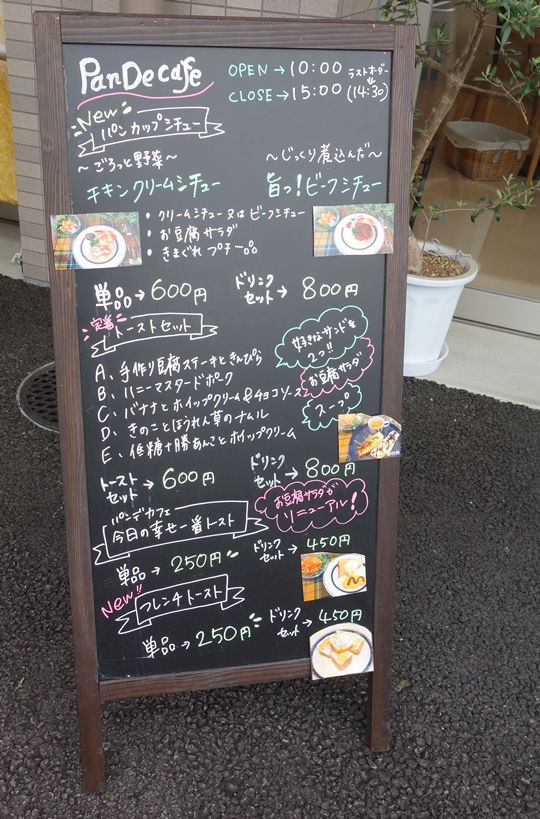 PanDecafe
OPEN→10:00 ラストオーダー
CLOSE→15:00 (14:30)
New
パンカップシチュー
～ごろっと野菜～ ～じっくり煮込んだ～
チキンクリームシチュー 旨っ!ビーフシチュー
・クリームシチュー又はビーフシチュー
・お豆腐サラダ
・きまぐれプチ一品
単品→600円 ドリンクセット→800円
定番
トーストセット
好きなサンドを2つ!!
A、手作り豆腐ステーキときんぴら
お豆腐サラダ
B、ハニーマスタードポーク
C、バナナとホイップクリーム&チョコソース
スープ
D、きのことほうれん草のナムル
E、低糖十勝あんことホイップクリーム
トーストセット→600円 ドリンクセット→800円
お豆腐サラダがリニューアル!
パンデカフェ
今日の幸せ一番トスト
単品→250円 ドリンクセット→450円
New!!
フレンチトースト
単品→250円 ドリンクセット→450円